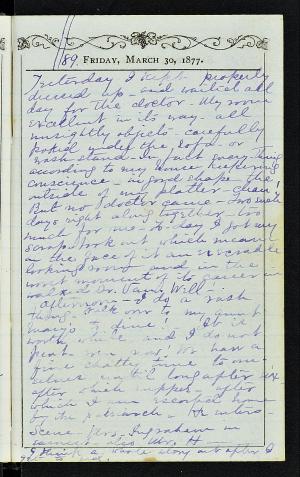 89. FRIDAY, MARCH 30, 1877.
Yesterday I kept properly
dressed up - and waited all
day for the doctor - My room
excellent in its way - all
unsightly objects - carefully
poked under the sofa - or
wash stand - in fact every thing
according to my housekeeping
conscience - in good shape the
outside of my platter - clean!
But no doctor came - two such
days right along together - too
much for me - to day I got my
scrap book out which means
on the face of it an
looking room - and in the
worst moment of its career in
walked Dr. Will!
Afternoon - I do a rash
thing - walk over to my aunt
Mary's to dine! It is
worth while and I do not
We have a
fine chatty time to our-
selves until long after six
after which supper - after
which I am escorted home
by the patriarch - He enters -
Scene - Mrs. Ingraham in
also Mr. H
I think I wrote along out after I